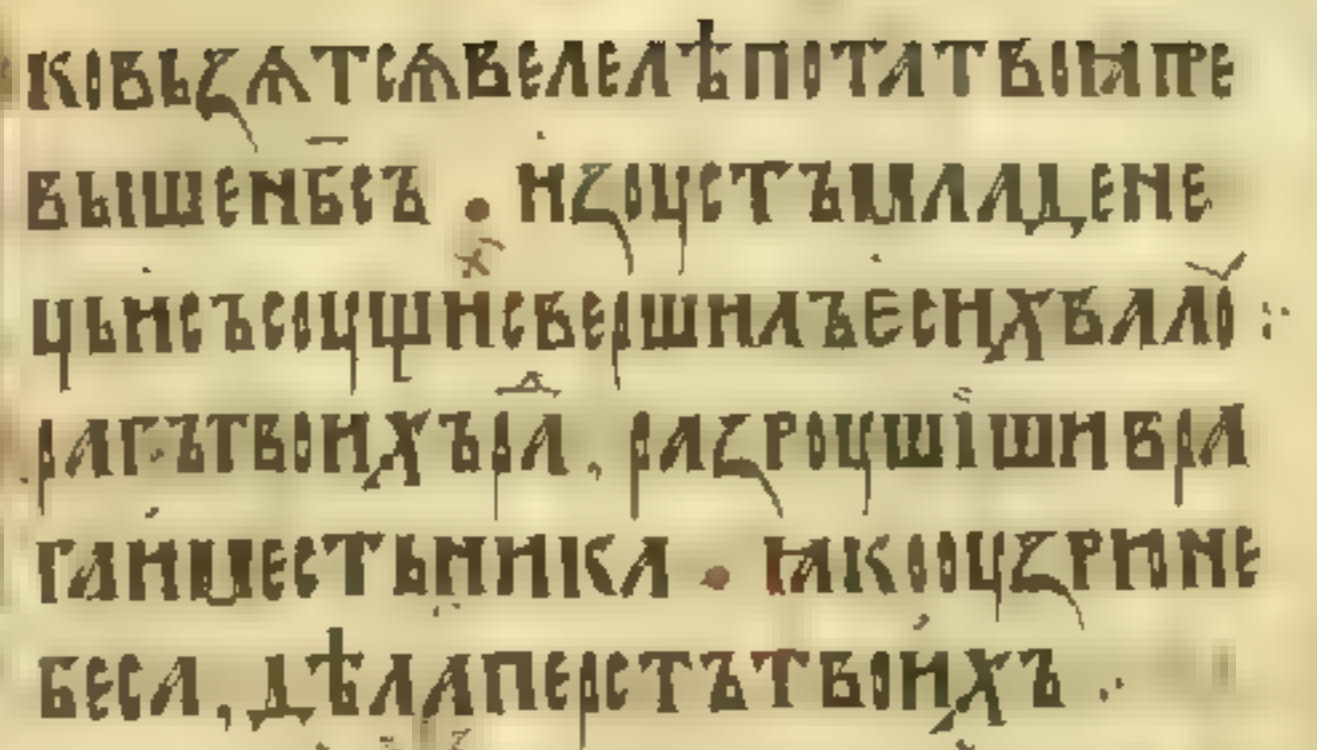 ковьꙁѧтсѧвелелѣпотатвоꙗпре
вышен҃бсъ • иꙁоцстъмладене
цьисъсоцщисвершилъесихвало :
рагътвоихърⷣа , раꙁроцшїшивра
гаиместьника • ꙗкооцꙁрюне
беса , дѣлаперстътвоихъ .